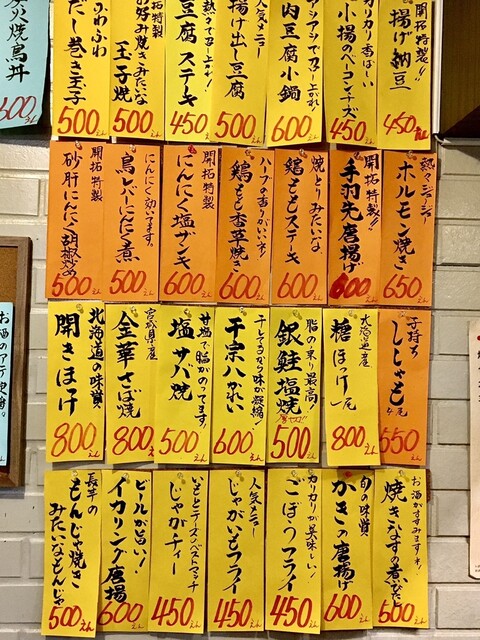 開拓特製!!
揚げ納豆
450えん
カリカリ香ばしい
小揚のベーコンチーズ
450えん
アツアツで召し上がれ!
肉豆腐小鍋
600えん
人気メニュー
揚げ出し豆腐
500えん
熱々で召し上がれ!
豆腐ステーキ
450えん
お好み焼きみたいな
玉子焼
500えん
ふわふわ
だし巻き玉子
500えん
炭火焼鳥丼
600えん
熱々ジュージュー
ホルモン焼き
650えん
開拓特製!!
手羽先唐揚げ
600えん
焼とりみたいな
鶏ももステーキ
600えん
ハーブの香りがいいネ!
鶏もも香草焼き
600えん
開拓特製
にんにく塩ザンキ
600えん
にんにく効いてます。
鳥レバーにんにく煮
500えん
開拓特製
砂肝にんにく胡椒炒め
500えん
子持ち
ししゃも
4尾
550えん
北海道産
糖ほっけ一尾
800えん
脂の乗り最高!
銀鮭塩焼
500えん
干してるから味が凝縮!
干宗八かれい
600えん
甘塩で脂がのってます。
塩サバ焼
500えん
宮城県産
金華さば焼
800えん
北海道の味覚
開きほっけ
800えん
お酒がすすみますネ!
焼きなすの煮びたし
500えん
旬の味覚
かきの唐揚げ
600えん
カリカリが美味しい!
ごぼうフライ
450えん
人気メニュー
じゃがいもフライ
450えん
いもとチーズのベストマッチ
じゃがチィー
450えん
ビールが旨い!
イカリング唐揚
600えん
長芋の
もんじゃ焼き
みたいなもんじゃ
500えん
お酒のアテ